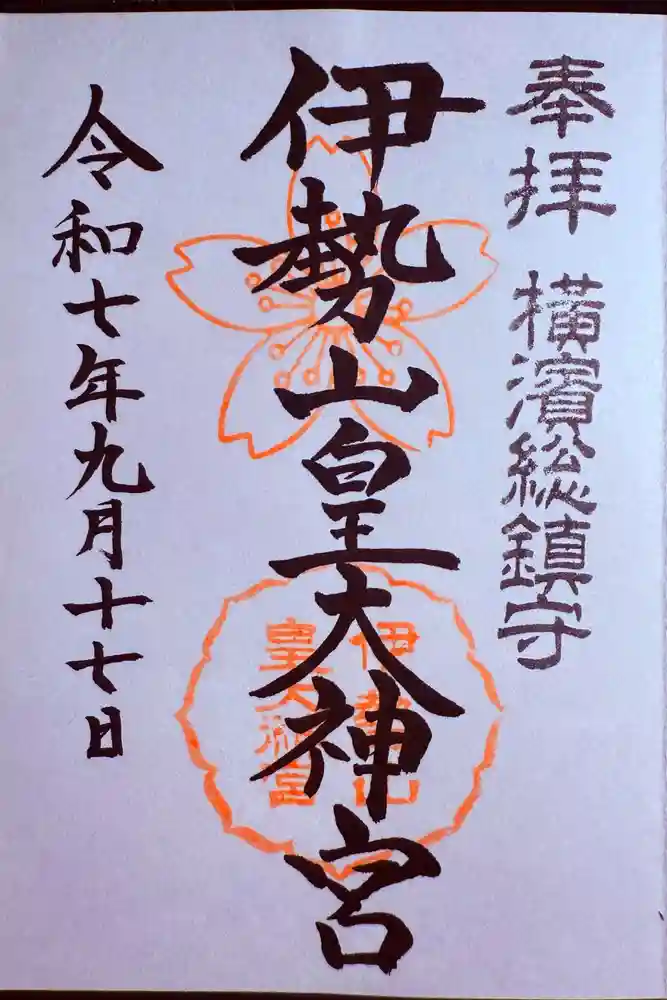 奉拝 横濱総鎮守
伊勢山皇大神宮
伊勢山
皇大神宮
令和七年九月十七日